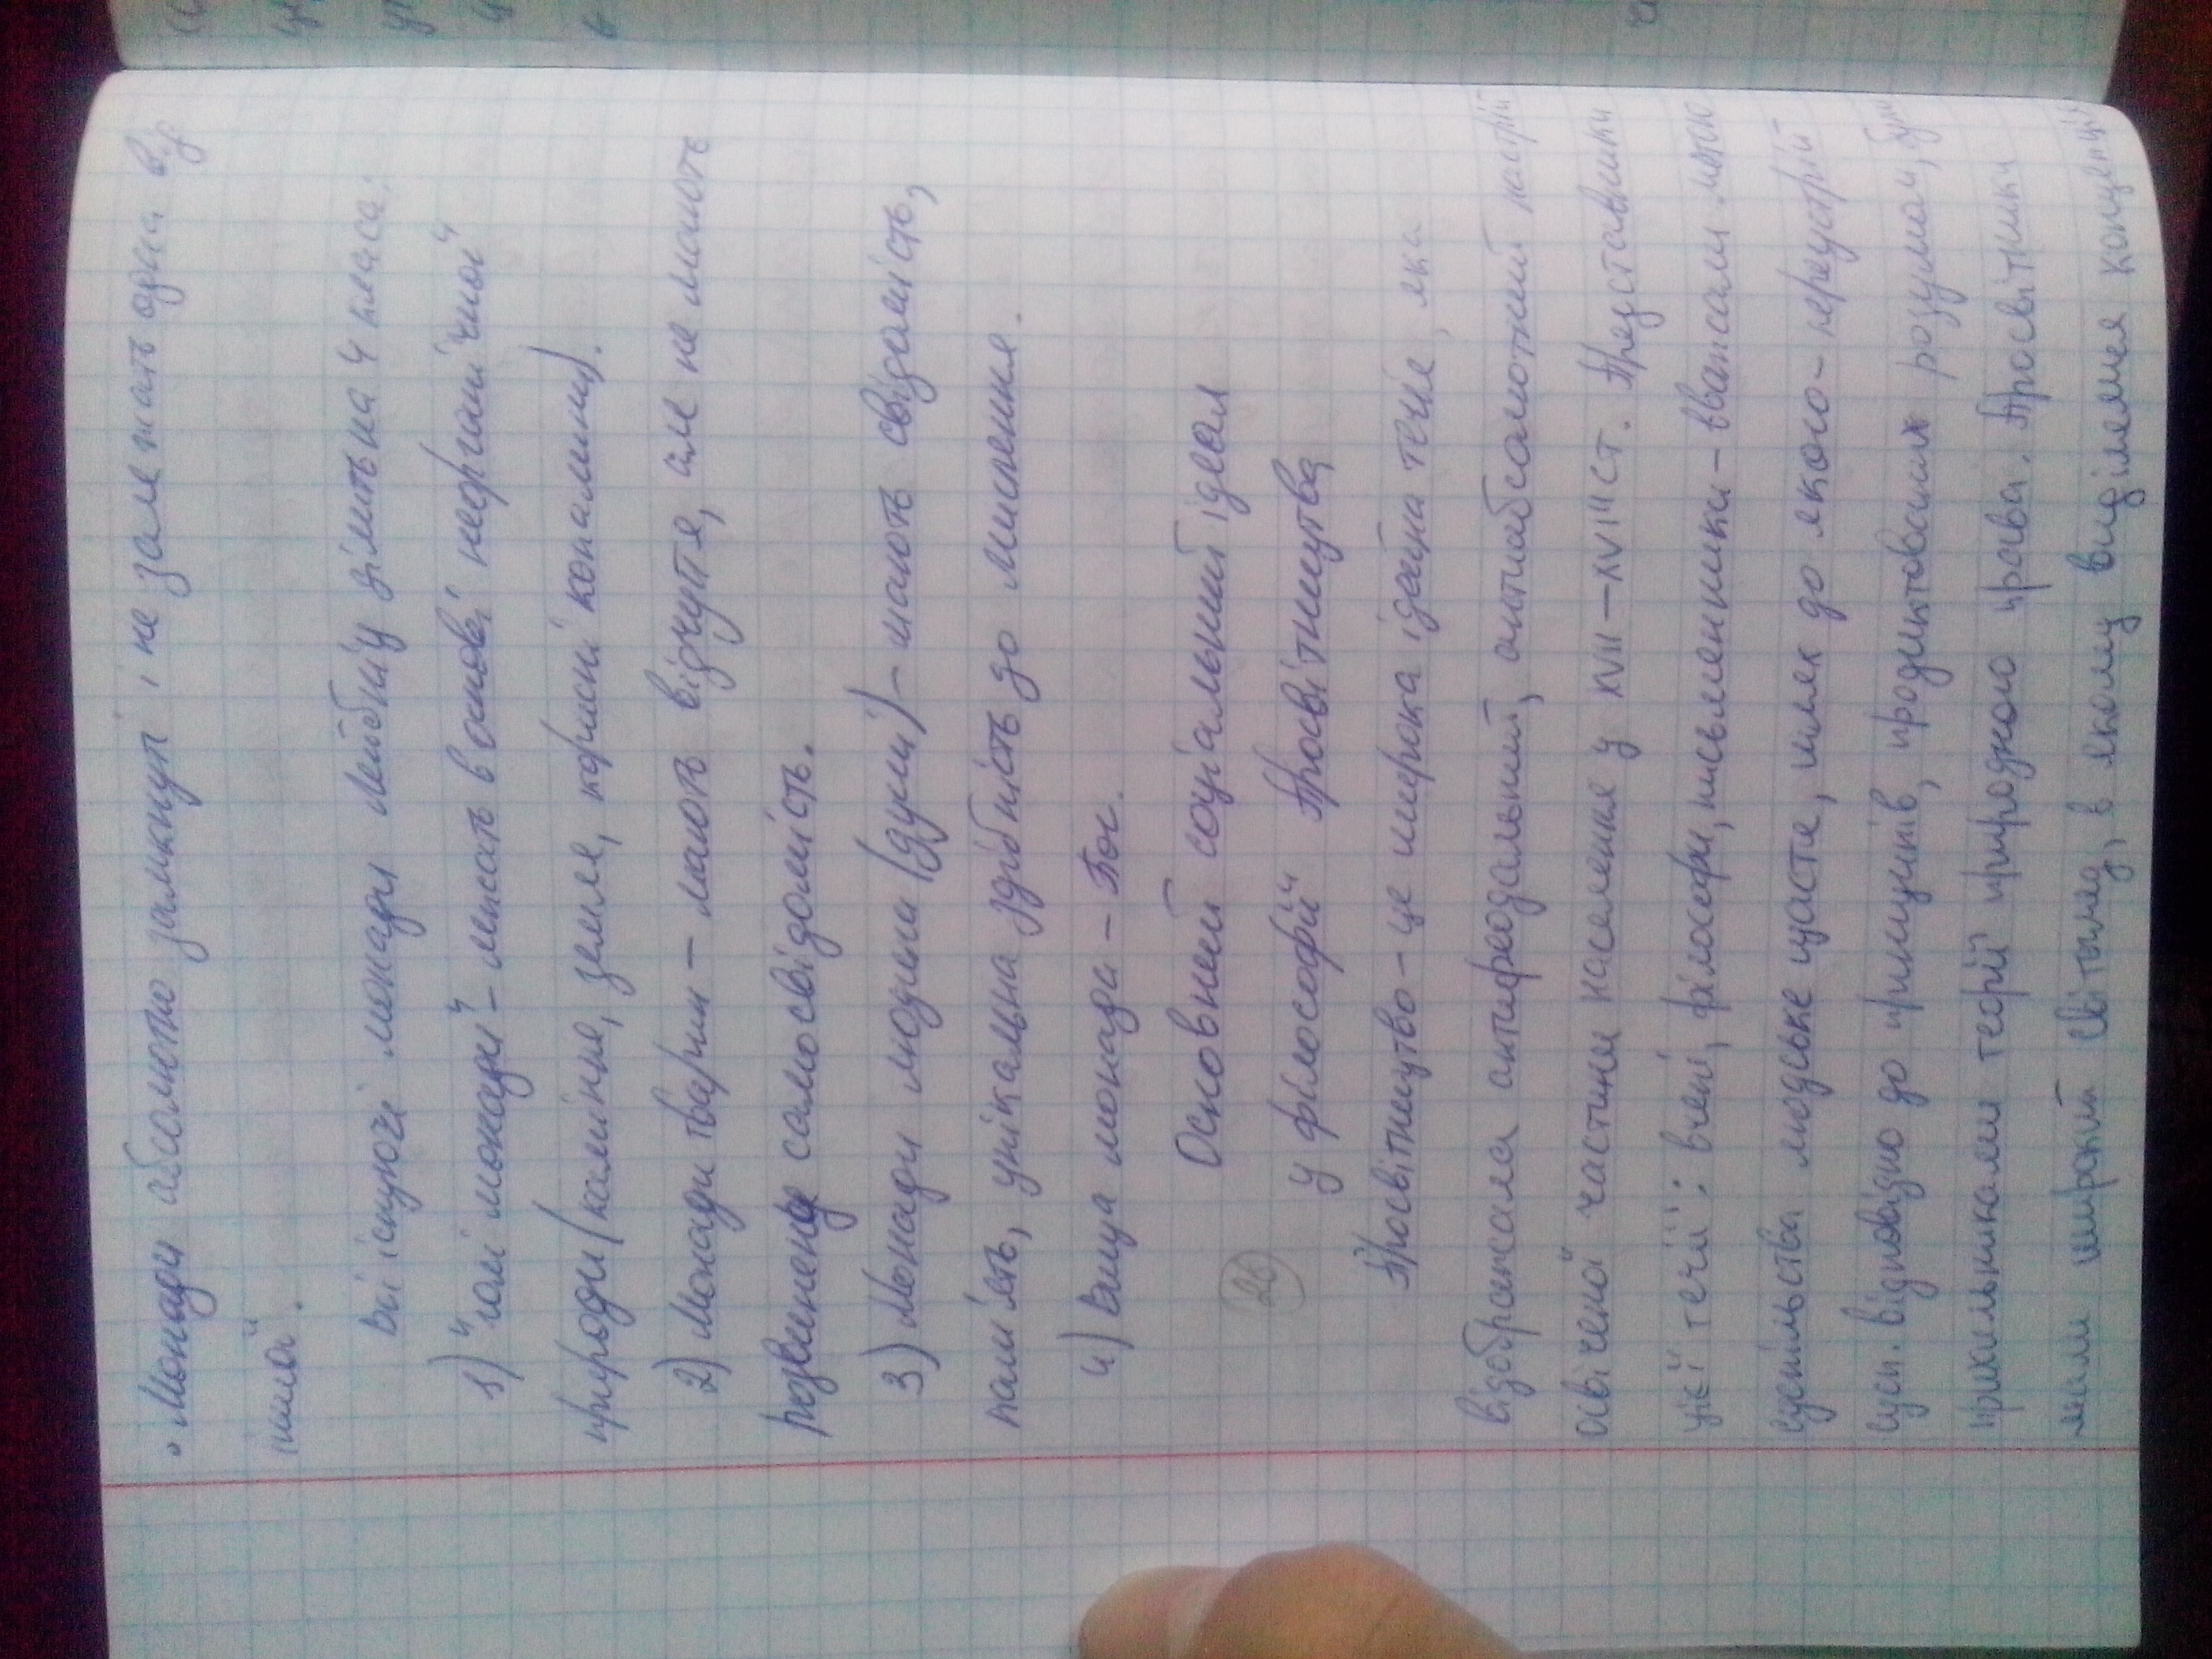 • Монади абсолютно замкнуті і не залежать одна від
іншої.
Всі існуючі монади Лейбніц ділить на 4 класа:
1) "голі монади" – лежать в основі неорганічної
природи (каміння, земля, корисні копалини).
2) Монади тварин – мають відчуття, але не мають
розвинену самосвідомість.
3) Монади людини (душі) – мають свідомість,
пам'ять, унікальна здібність до мислення.
4) Вища монада – Бог.
Основний соціальний ідеал
26
у філософії Просвітництва
Просвітництво – це широка ідейна течія, яка
відображала антифеодальний, антиабсолютний настрій
освіченої частини населення у XVII – XVIII ст. Представники
цієї течії: вчені, філософи, письменники – вважали метою
суспільства людське щастя, шлях до якого – переустрій
сусп. відповідно до принципів, продиктованих розумом, були
прихильниками теорії природного права. Просвітники
мали широкий світогляд, в якому виділялися концепція